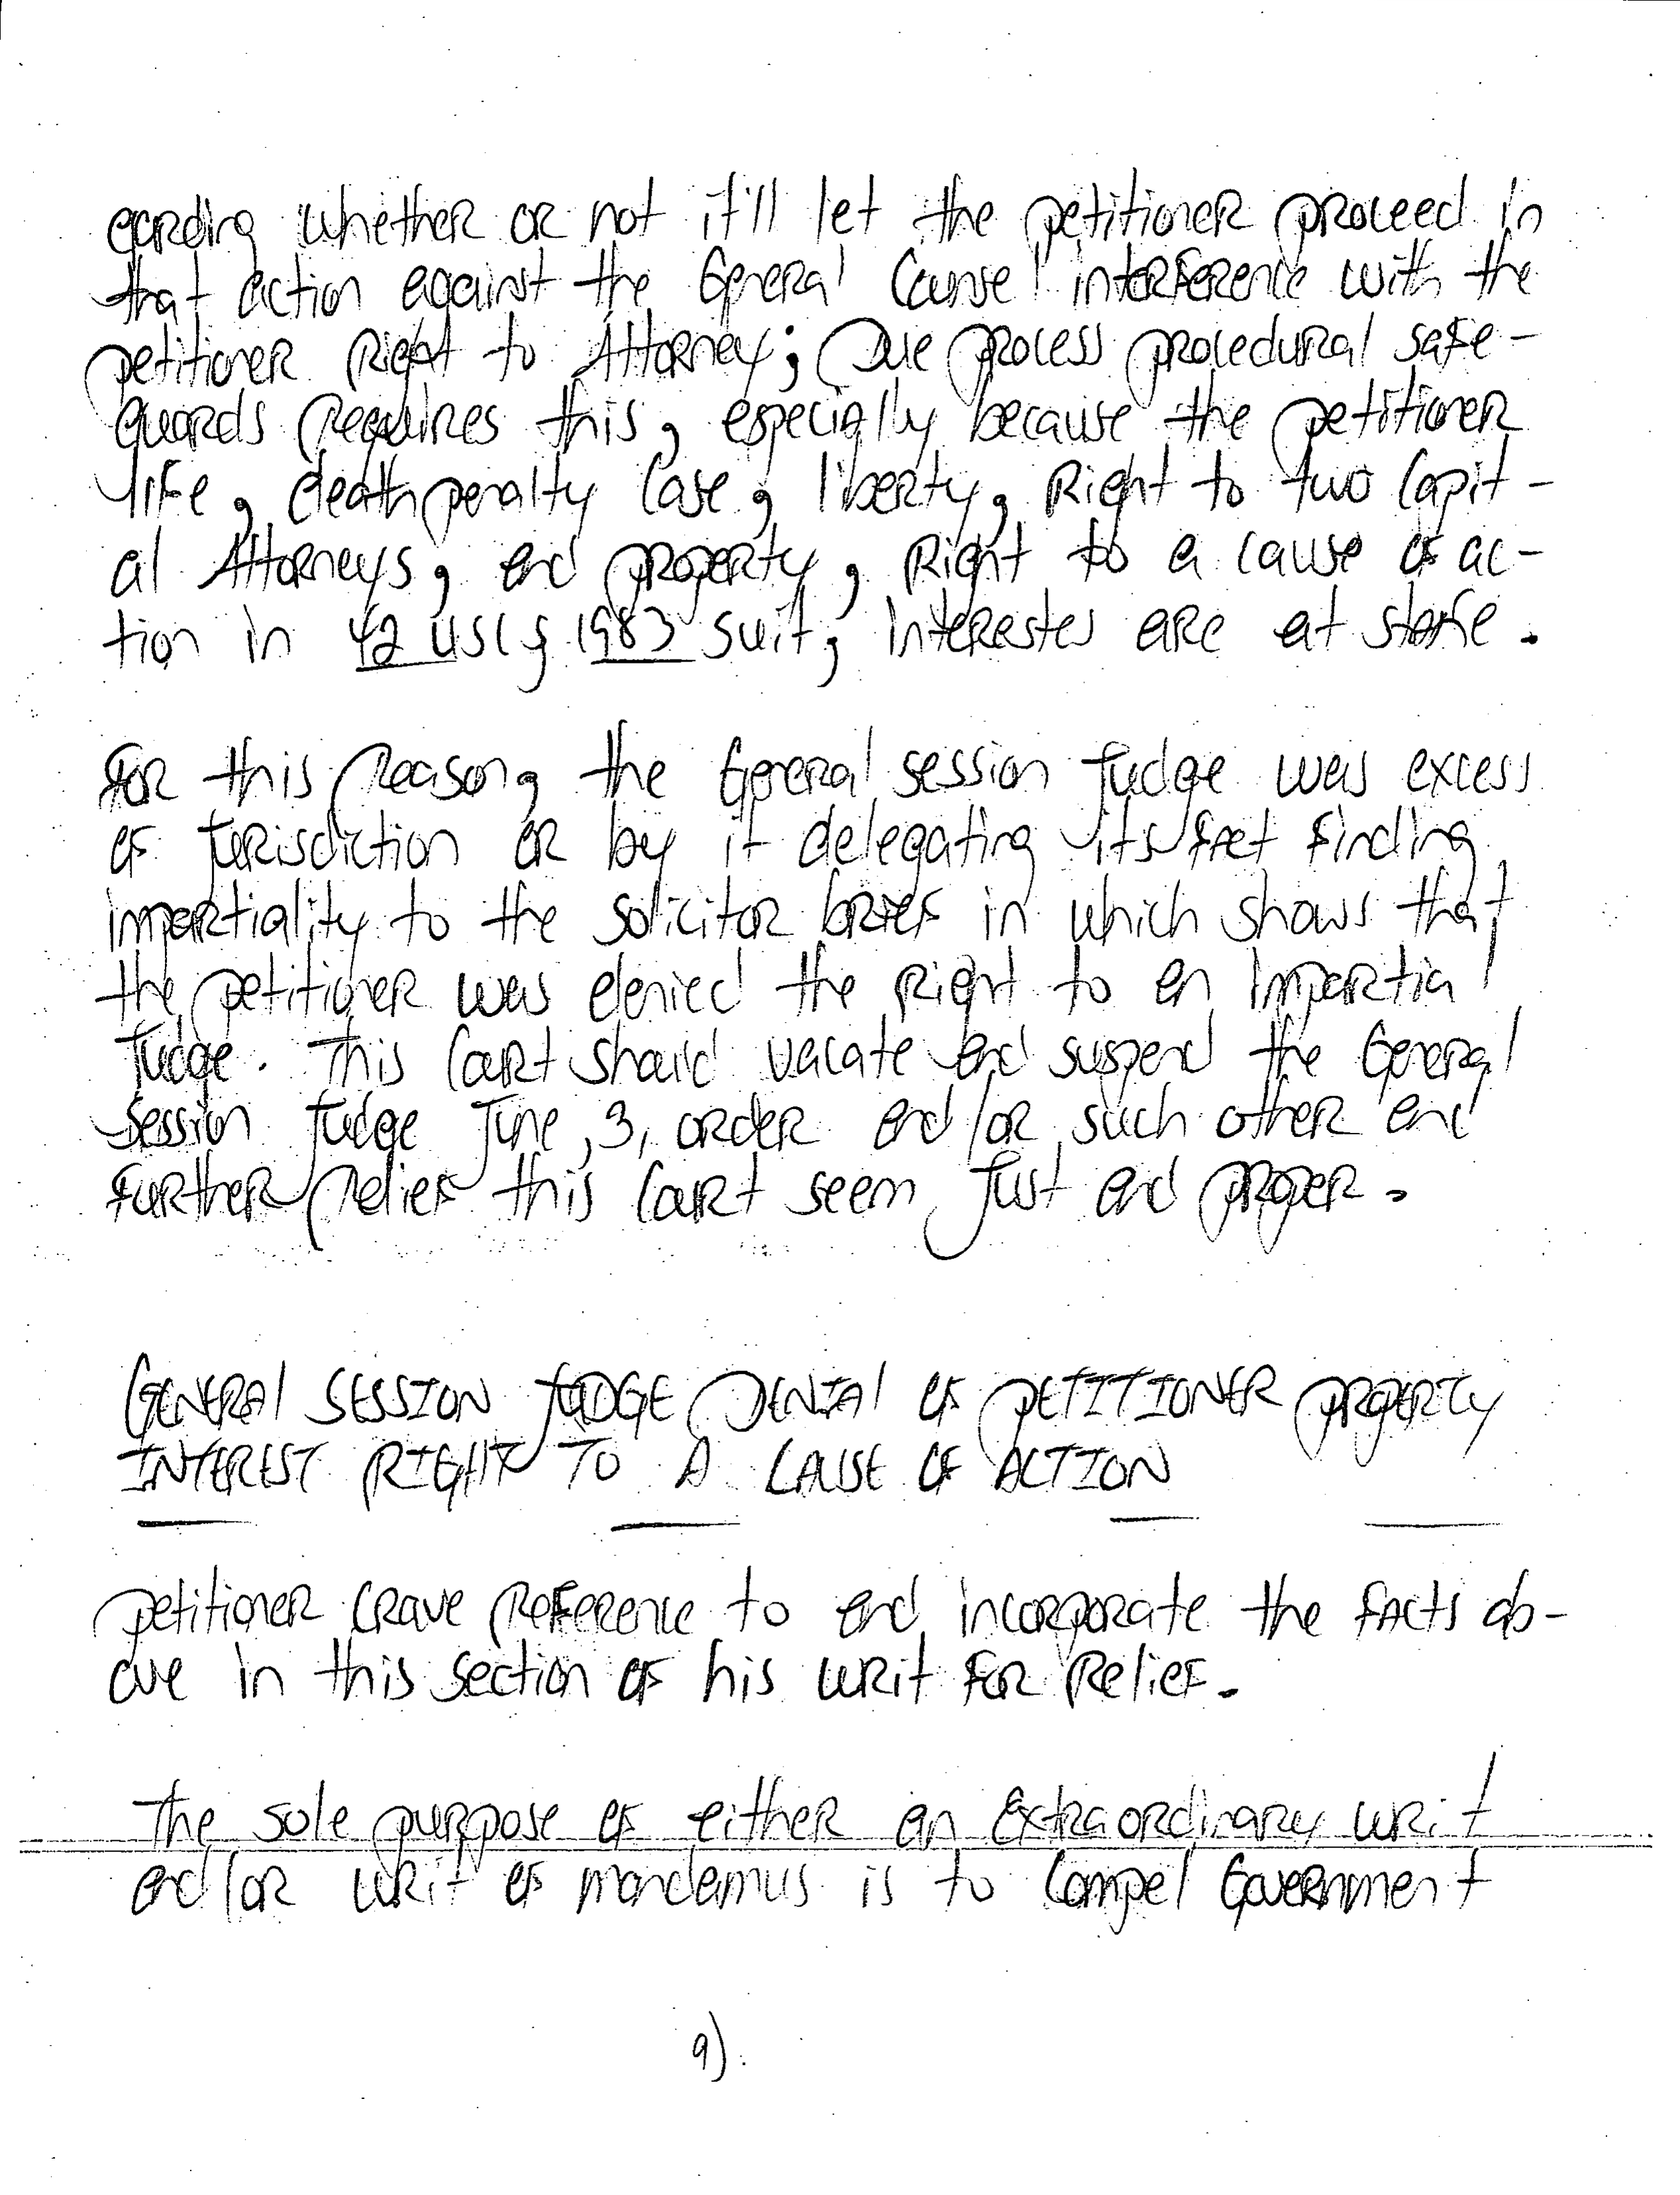 egarding whether or not it'll let the petitioner proceed in
that action against the General Counsel interference with the
petitioner Right to Attorney; Due process procedural safe-
guards Requires this, especially because the petitioner
life, death penalty case, liberty, Right to two Capit-
al Attorneys, and property, Right to a cause of ac-
tion in 42 USC § 1983 suit, interestes are at stake.
For this Reason, the General session Judge was excess
of Jurisdiction or by it delegating its fact finding
impartiality to the solicitor brief in which shows that
the petitioner was denied the Right to an Impartial
Judge. This Court should vacate and suspend the General
Session Judge June, 3, order and/or such other and
further Relief this Court seem Just and proper.
GENERAL SESSION JUDGE DENIAL OF PETITIONER PROPERTY
INTEREST RIGHT TO A CAUSE OF ACTION
petitioner crave Reference to and incorporate the facts ab-
ove in this section of his writ for Relief.
The sole purpose of either an Extraordinary writ
and/or writ of mandamus is to Compel Government
9).